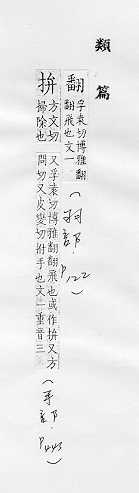 類篇
翻 孚袁切博雅翻
翻飛也文一
(羽部. P122)
拚 方文切
掃除也
又孚袁切博雅翻翻飛也或作拚又方
問切又皮變切拊手也文一重音三
(手部. P445)